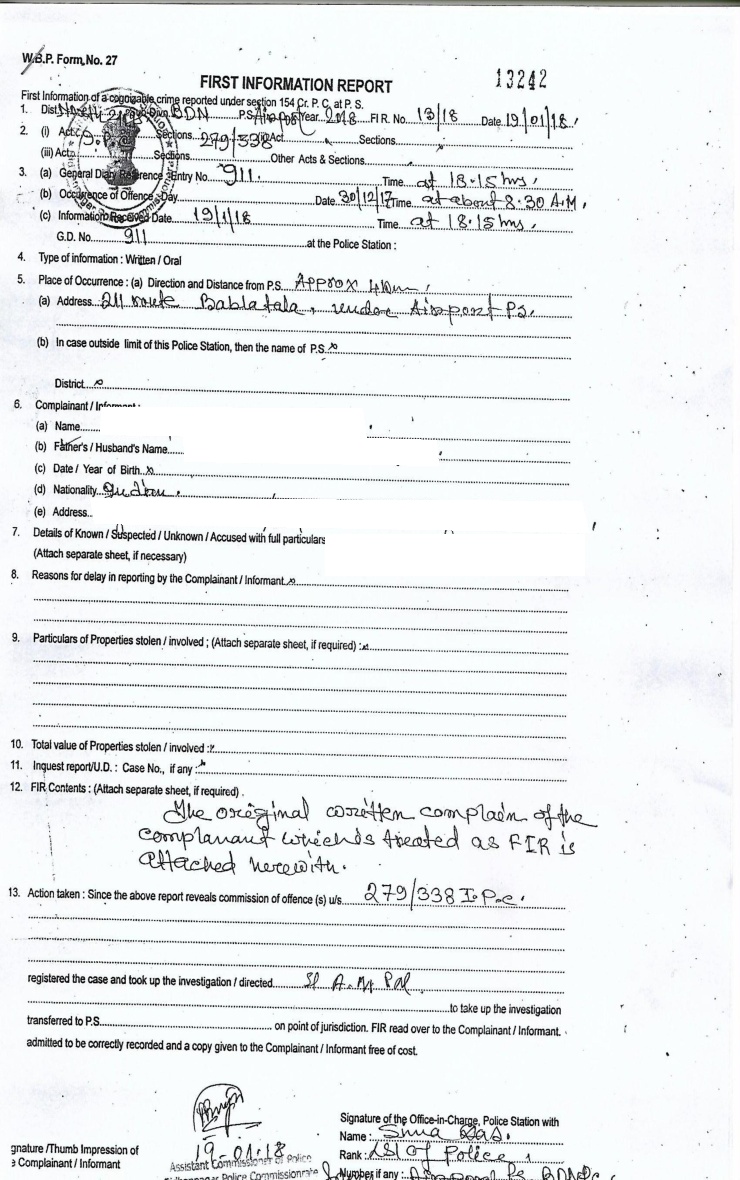 W.B.P. Form, No. 27
13242
FIRST INFORMATION REPORT
First Information of a cognizable crime reported under section 154 Cr. P. C. at P. S.
1. Dist. BDN P.S. Airport Year 2018 FIR. No. 13/18 Date 19/01/18
2. (i) Act Sections 279/338 Act Sections
(iii) Act Sections Other Acts & Sections
3. (a) General Diary Reference : Entry No. 911. Time at 18.15 hrs,
(b) Occurrence of Offence : Day Date 30/12/17 Time at about 8.30 A.M,
(c) Information Received Date 19/1/18 Time at 18.15 hrs,
G.D. No. 911 at the Police Station :
4. Type of information : Written / Oral
5. Place of Occurrence : (a) Direction and Distance from P.S. Approx 4 km,
(a) Address 211 route Bablatala, under Airport P.S.
(b) In case outside limit of this Police Station, then the name of P.S. x
District x
6. Complainant / Informant :
(a) Name
(b) Father's / Husband's Name
(c) Date / Year of Birth x
(d) Nationality Indian.
(e) Address
7. Details of Known / Suspected / Unknown / Accused with full particulars
(Attach separate sheet, if necessary)
8. Reasons for delay in reporting by the Complainant / Informant x
9. Particulars of Properties stolen / involved ; (Attach separate sheet, if required) : x
10. Total value of Properties stolen / involved :
11. Inquest report/U.D. : Case No., if any : x
12. FIR Contents : (Attach separate sheet, if required) .
The original written complain of the
complanant which is treated as FIR is
attached herewith.
13. Action taken : Since the above report reveals commission of offence (s) u/s. 279/338 I.P.C.
registered the case and took up the investigation / directed SI A. M Pal
to take up the investigation
transferred to P.S. on point of jurisdiction. FIR read over to the Complainant / Informant.
admitted to be correctly recorded and a copy given to the Complainant / Informant free of cost.
Signature of the Office-in-Charge, Police Station with
19-01-18
Name : Das.
gnature /Thumb Impression of
Assistant Commissioner of Police
Rank : SI of Police
Complainant / Informant
Police Commissionrate
Number if any : Airport P.S.